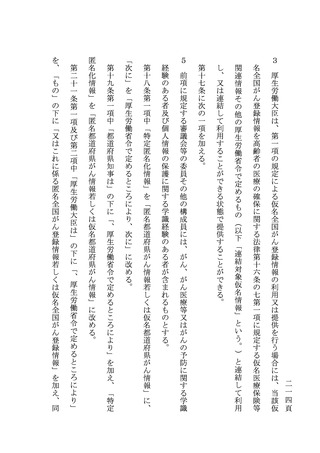 二一四頁
３　厚生労働大臣は、第一項の規定による仮名全国がん登録情報の利用又は提供を行う場合には、当該仮
名全国がん登録情報を高齢者の医療の確保に関する法律第十六条の七第一項に規定する仮名医療保険等
関連情報その他の厚生労働省令で定めるもの（以下「連結対象仮名情報」という。）と連結して利用
し、又は連結して利用することができる状態で提供することができる。
第十七条に次の一項を加える。
５　前項に規定する審議会等の委員その他の構成員には、がん、がん医療等又はがんの予防に関する学識
経験のある者及び個人情報の保護に関する学識経験のある者が含まれるものとする。
第十八条第一項中「特定匿名化情報」を「匿名都道府県がん情報若しくは仮名都道府県がん情報」に、
「次に」を「厚生労働省令で定めるところにより、次に」に改める。
第十九条第一項中「都道府県知事は」の下に「、厚生労働省令で定めるところにより」を加え、「特定
匿名化情報」を「匿名都道府県がん情報若しくは仮名都道府県がん情報」に改める。
第二十一条第一項及び第二項中「厚生労働大臣は」の下に「、厚生労働省令で定めるところにより」
を、「もの」の下に「又はこれに係る匿名全国がん登録情報若しくは仮名全国がん登録情報」を加え、同